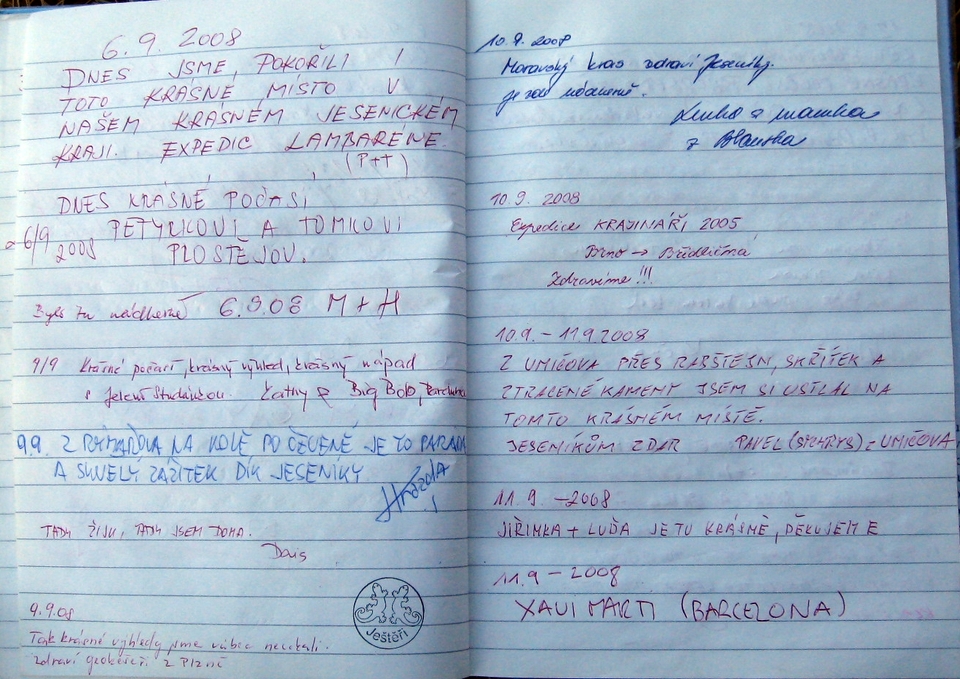 6.9. 2008
DNES JSME, POKOŘILI I
TOTO KRÁSNÉ MÍSTO V
NAŠEM KRÁSNÉM JESENICKÉM
KRAJI. EXPEDIC LAMBARÉNE
(P+T)
DNES KRÁSNÉ POČASÍ,
6/9 2008
A TOMKOVI
PLOSTĚJOV.
Bylo tu nádherně 6.9.08 M + H
9/9 krásné počasí, krásný výhled, krásný nápad
s Jelení Studánkou. Kathy & Big Bob,
9.9. Z NA KOLE PO ČEVENÉ JE TO PARÁDA
A SKVELÝ ZÁŽITEK DÍK JESENÍKY
TADY ŽIJU, TADY JSEM DOMA.
9.9.08
Tak krásné výhledy jsme vůbec nečekali.
Zdraví geokešeři z Plzně
Ještěři
10.9. 2008
Moravský kras zdraví Jeseníky.
Je tu nádherně.
Lenka a mamka
z Blanska
10.9. 2008
Expedice KRAJINÁŘI 2005
Brno →
Zdravíme!!!
10.9. - 11.9 2008
Z UNIČOVA PŘES RABŠTEJN, SKŘÍTEK A
ZTRACENÉ KAMENY JSEM SI USTLAL NA
TOMTO KRÁSNÉM MÍSTĚ.
JESENÍKŮM ZDAR PAVEL Z UNIČOVA
11.9. - 2008
JIŘINKA + LUĎA JE TU KRÁSNĚ, DĚKUJEME
11.9 - 2008
XAVI MARTI (BARCELONA)